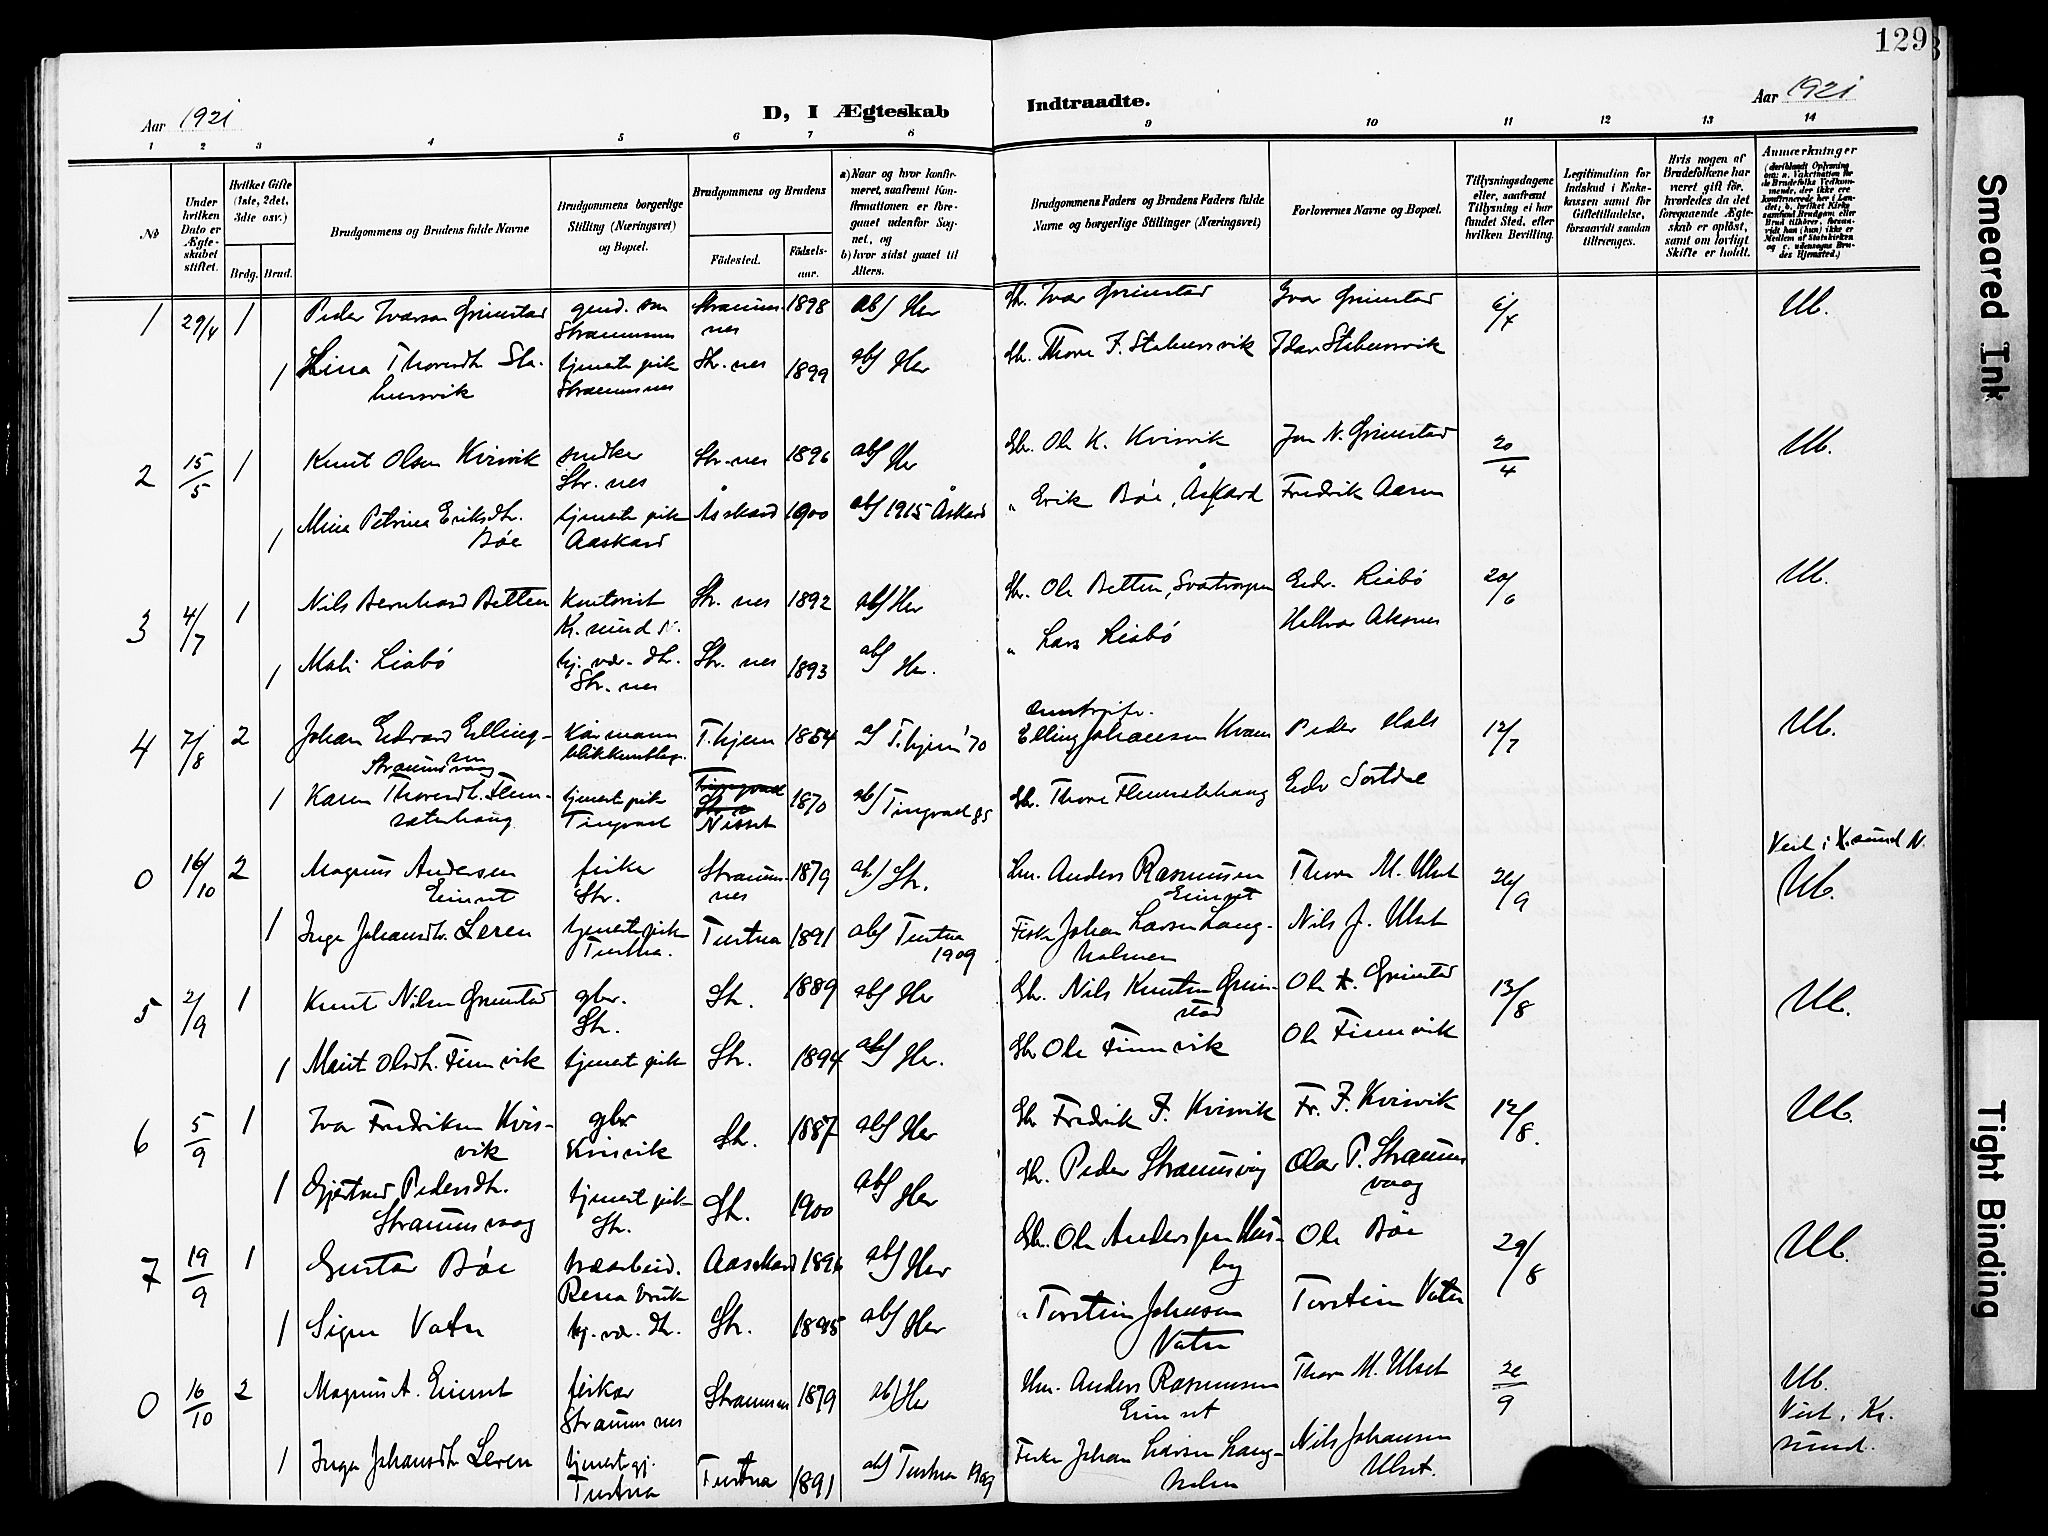 129
Aar 1921
D, I Ægteskab
Indtraadte.
Aar 1921
1 2 3 4 5 6 7 8 9 10 11 12 13 14
No
Under hvilken Dato er Ægteskabet stiftet.
Hvilket Gifte (1ste, 2det, 3die osv.)
Brdg. Brud.
Brudgommens og Brudens fulde Navne
Brudgommens borgerlige Stilling (Næringsvei) og Bopæl.
Brudgommens og Brudens
Fødested.
Fødselsaar.
a) Naar og hvor konfirmeret, saafremt Konfirmationen er foregaaet udenfor Sognet, og
b) hvor sidst gaaet til Alters.
Brudgommens Faders og Brudens Faders fulde Navne og borgerlige Stillinger (Næringsvei)
Forlovernes Navne og Bopæl.
Tillysningsdagene eller, saafremt Tillysning ei har fundet Sted, efter hvilken Bevilling.
Legitimation for Indskud i Enkekassen samt for Giftetilladelse, forsaavidt saadan tiltrænges.
Hvis nogen af Brudefolkene har været gift før, hvorledes da det foregaaende Ægteskab er opløst, samt om lovligt Skifte er holdt.
Anmærkninger
1 29/4 1 Peder Ivarson Grimstad
Straumsnes
Straums-
nes
1898 ab/ Her
Ivar Grimstad
Ivar Grimstad
1 Lina Thoresdtr. Sta-
bensvik
tjenest pik
Straumsnes
Str.nes 1899 ab/ Her
Thore J. Stabensvik
2 15/5 1 Knut Olsen Kvisvik
snedker
Str.nes
Str.nes 1896 ab/ Her
Gbr. Ole K. Kvisvik
Jon N. Grimstad
20/4
1 Mina Petrina Eriksdtr.
Bøe
tjeneste pik
Aaskard
Åsskard 1900 ab/ 1915 Åskard
" Erik Bøe, Åskard
Fredrik Aasen
3 4/7 1 Nils Bernhard Betten
Kontorist
Kr.sund N.
Str.nes 1892 ab/ Her
Gbr. Ole Betten,
Edv. Liabø
20/6
1 Mali Liabø
hj. vær. dtr.
Str.nes
Str.nes 1893 ab/ Her.
" Lars Liabø
4 7/8 2 Johan Edvard Elling-
sen
Straumsvaag
T.hjem 1854 T.hjem '70
Elling Johansen Kvam
Peder Hals
12/7
1 Karen Thoresdtr. Flem-
sæterhaug
tjenest pik
Tingvoll
Nesset
1870 ab/ Tingvoll 85
Gbr. Thore Flemsæterhaug
0 16/10 2 Magnus Andersen
Eimset
fisker
Str.
Straums-
nes
1879 ab/ Str.
Hm. Anders Rasmussen
Eimset
Thore M. Ulset
26/9
Viet i K.sund N.
1 Inga Johansdtr. Leren
tjeneste pik
Tustna.
Tustna 1891 ab/ Tustna
1909
Fisker Johan Larsen Lang-
holmen
Nils J. Ulset
5 2/9 1 Knut Nilsen Grimstad
gbr.
Str.
Str. 1889 ab/ Her
Gbr. Nils Knutsen Grim-
stad
Ole K. Grimstad
13/8
1 Marit Olsdtr. Finnvik
tjenest pik
Str. 1894 ab/ Her.
Gbr Ole Finnvik
Ole Finnvik
6 5/9 1 Ivar Fredriksen Kvis-
vik
gbr
Kvisvik
Str. 1887 ab/ Her
Gbr Fredrik F. Kvisvik
Fr. F. Kvisvik
12/8.
1 Gjertrud Pedersdtr.
Straumsvaag
tjenest pik
Str.
Str. 1900 ab/ Her
Gbr. Peder Straumsvåg
Olav P. Straums
vaag
7 19/9 1 Gustav Bøe
træarbeid.
Rena bruk
Aasskard 1896 ab/ Her
Gbr. Ole Anderssen Hus-
by
Ole Bøe
29/8
1 Signe Vatn
hj. vær. dtr.
Str. 1895 ab/ Her
" Torstein Johansen
Vatn
Torstein Vatn
0 16/10 2 Magnus A. Eimset
fisker
Straumsnes
Straumsnes 1879 ab/ Her
Hm. Anders Rasmussen
Eimset
Thore M. Ulset
26/9
Viet i Kr.
sund.
1 Inga Johansdtr Leren
tjenest pj.
Tustna
Tustna 1891 ab/ Tustna 1909
Fisker Johan Larsen Lang-
holm
Nils Johansen
Ulset.
Smeared Ink
Tight Binding